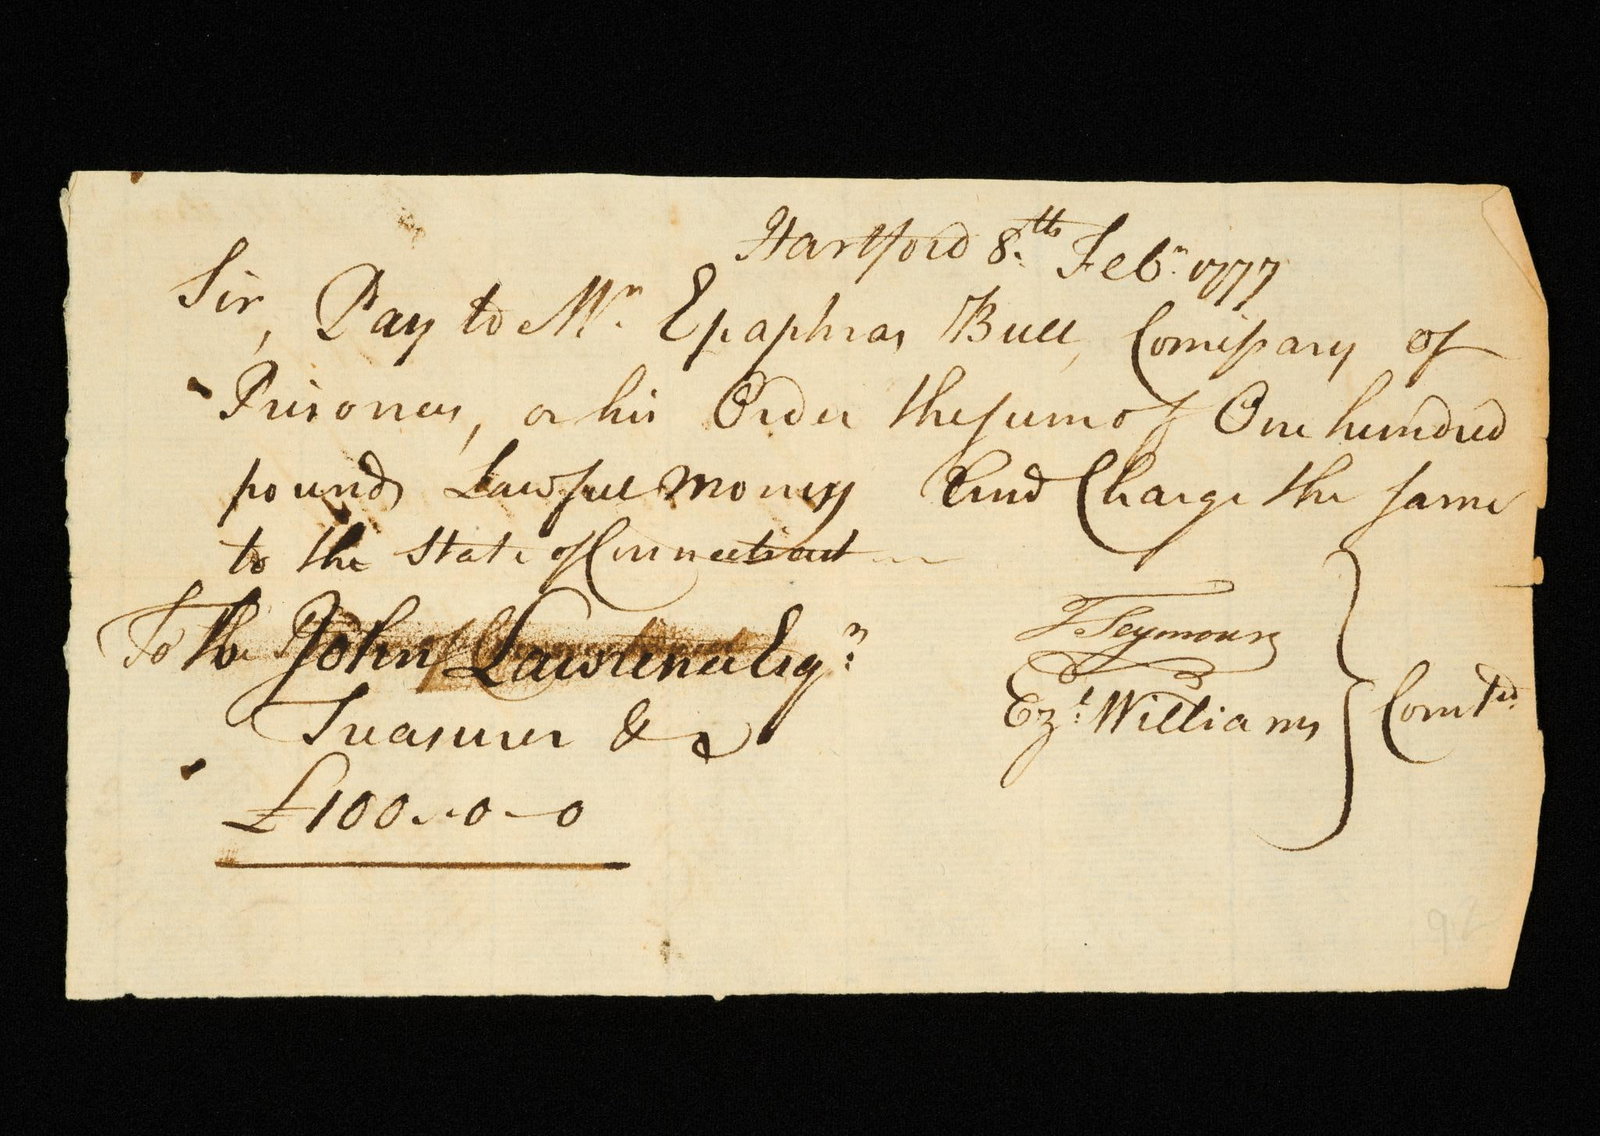 Hartford 8th Febr. 1777
Sir, Pay to Mr. Epaphras Bull, Comissary of
Prisoners, or his Order the sum of One hundred
pounds Lawfull Money And Charge the same
to the State of Connecticut
To the John Lawrence Esqr.
Treasurer &c
£100..0-0
T Seymour
Ezl. Williams } Comtee.